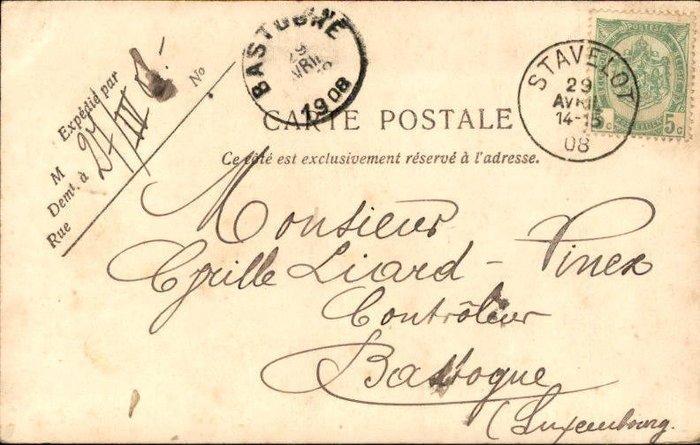 BASTOGNE
29
AVRIL
1908
STAVELOT
29
AVRIL
14-15
08
POSTES
5c 5c
Expédié par
M
Demt. à
Rue No
27/IV 8.
CARTE POSTALE
Ce côté est exclusivement réservé à l'adresse.
Monsieur
Cyrille Liard - Pinex
Contrôleur
Bastogne
(Luxembourg.